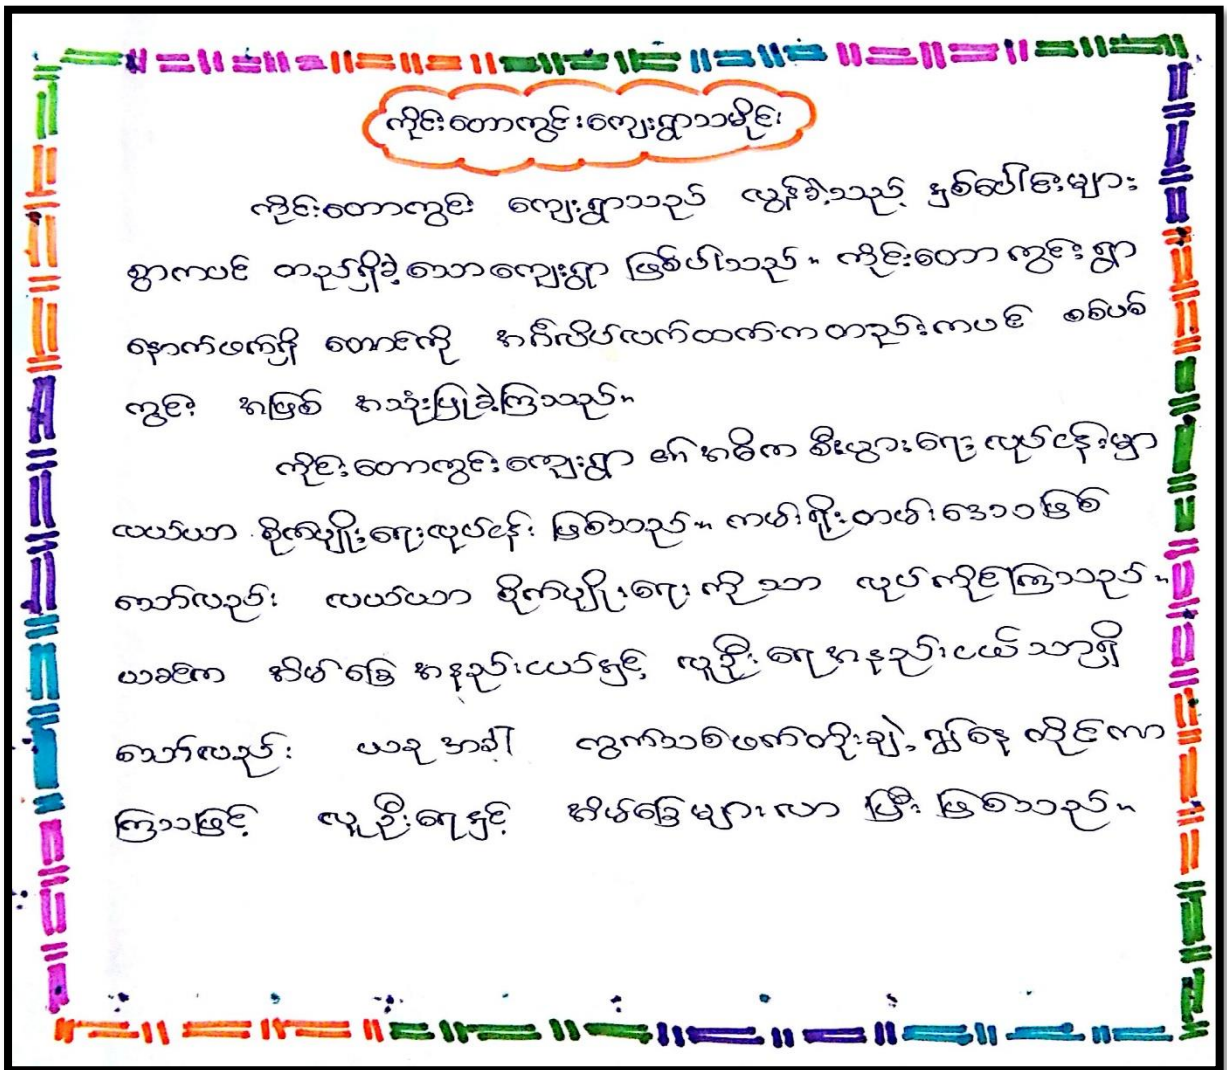 ကိုင်းတောကွင်းကျေးရွာသမိုင်း
ကိုင်းတောကွင်း ကျေးရွာသည် လွန်ခဲ့သည့် နှစ်ပေါင်းများ
စွာကပင် တည်ရှိခဲ့သောကျေးရွာ ဖြစ်ပါသည်။ ကိုင်းတောကွင်းရွာ
နောက်ဖက်ရှိ တောင်ကို အင်္ဂလိပ်လက်ထက်ကတည်းကပင် စစ်ပစ်
ကွင်း အဖြစ် အသုံးပြုခဲ့ကြသည်။
ကိုင်းတောကွင်းကျေးရွာ ၏အဓိက စီးပွားရေး လုပ်ငန်းမှာ
လယ်ယာ စိုက်ပျိုးရေးလုပ်ငန်း ဖြစ်သည်။ ကမ်းရိုးတမ်းဒေသဖြစ်
သော်လည်း လယ်ယာ စိုက်ပျိုးရေးကိုသာ လုပ်ကိုင်ကြသည်။
ယခင်က အိမ်ခြေ အနည်းငယ်နှင့် လူဦးရေအနည်းငယ်သာရှိ
သော်လည်း ယခုအခါ ကွက်သစ်ဖက်တိုးချဲ့ ၍နေ ထိုင်လာ
ကြသဖြင့် လူဦးရေနှင့် အိမ်ခြေများလာ ပြီး ဖြစ်သည်။